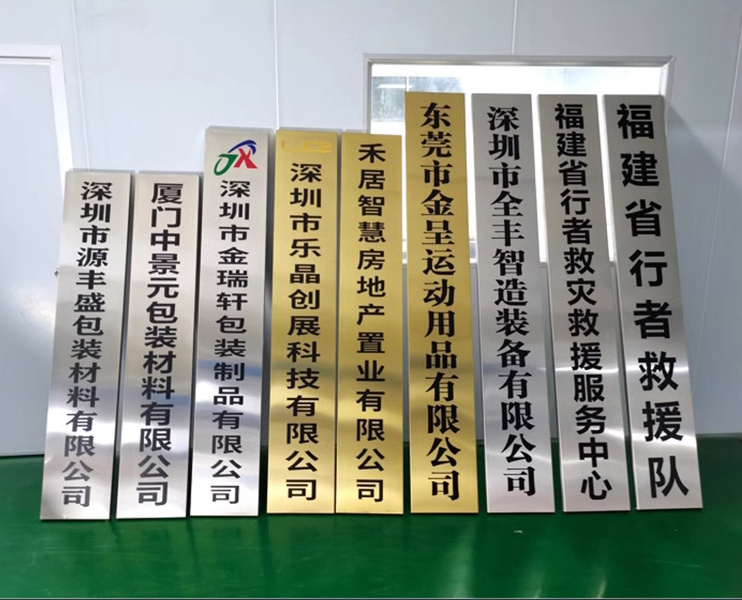 深圳市源丰盛包装材料有限公司
厦门中景元包装材料有限公司
JX
深圳市金瑞轩包装制品有限公司
深圳市乐晶创展科技有限公司
禾居智慧房地产置业有限公司
东莞市金呈运动用品有限公司
深圳市全丰智造装备有限公司
福建省行者救灾救援服务中心
福建省行者救援队